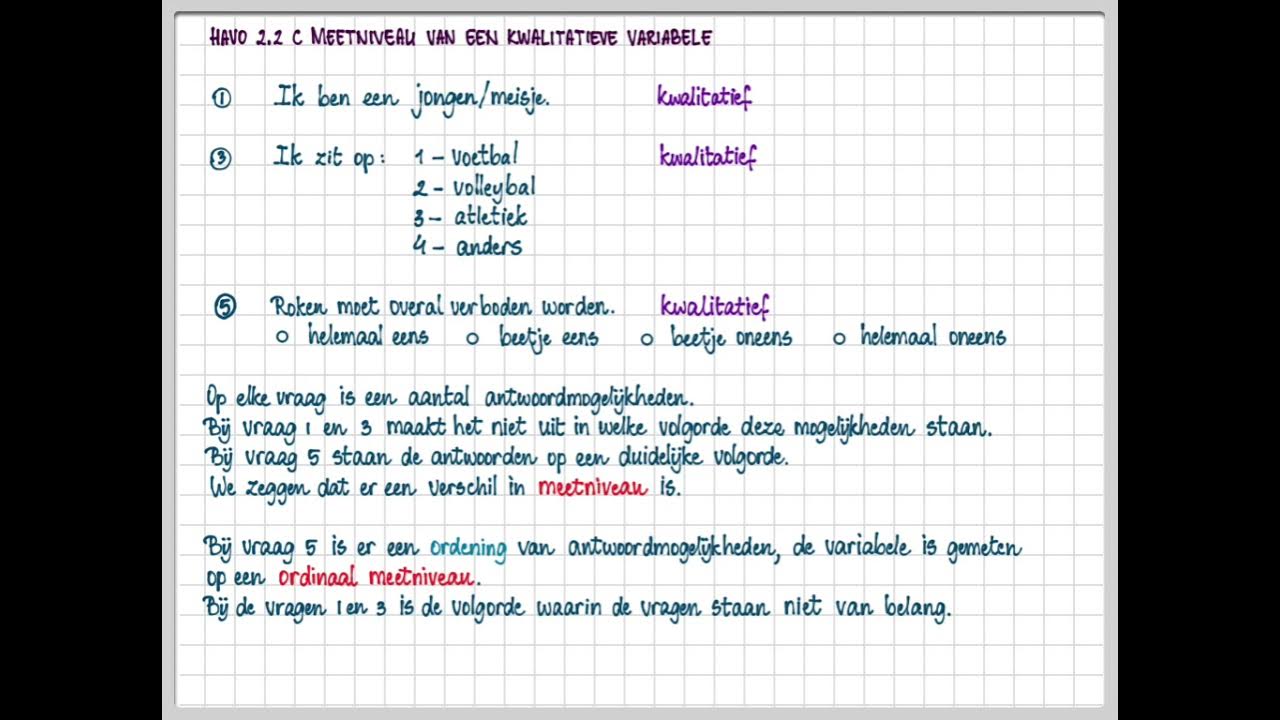 HAVO 2.2 C MEETNIVEAU VAN EEN KWALITATIEVE VARIABELE
① Ik ben een jongen/meisje. kwalitatief
③ Ik zit op: 1 – voetbal kwalitatief
2 – volleybal
3 – atletiek
4 – anders
⑤ Roken moet overal verboden worden. kwalitatief
○ helemaal eens ○ beetje eens ○ beetje oneens ○ helemaal oneens
Op elke vraag is een aantal antwoordmogelijkheden.
Bij vraag 1 en 3 maakt het niet uit in welke volgorde deze mogelijkheden staan.
Bij vraag 5 staan de antwoorden op een duidelijke volgorde.
We zeggen dat er een verschil in meetniveau is.
Bij vraag 5 is er een ordening van antwoordmogelijkheden, de variabele is gemeten
op een ordinaal meetniveau.
Bij de vragen 1 en 3 is de volgorde waarin de vragen staan niet van belang.